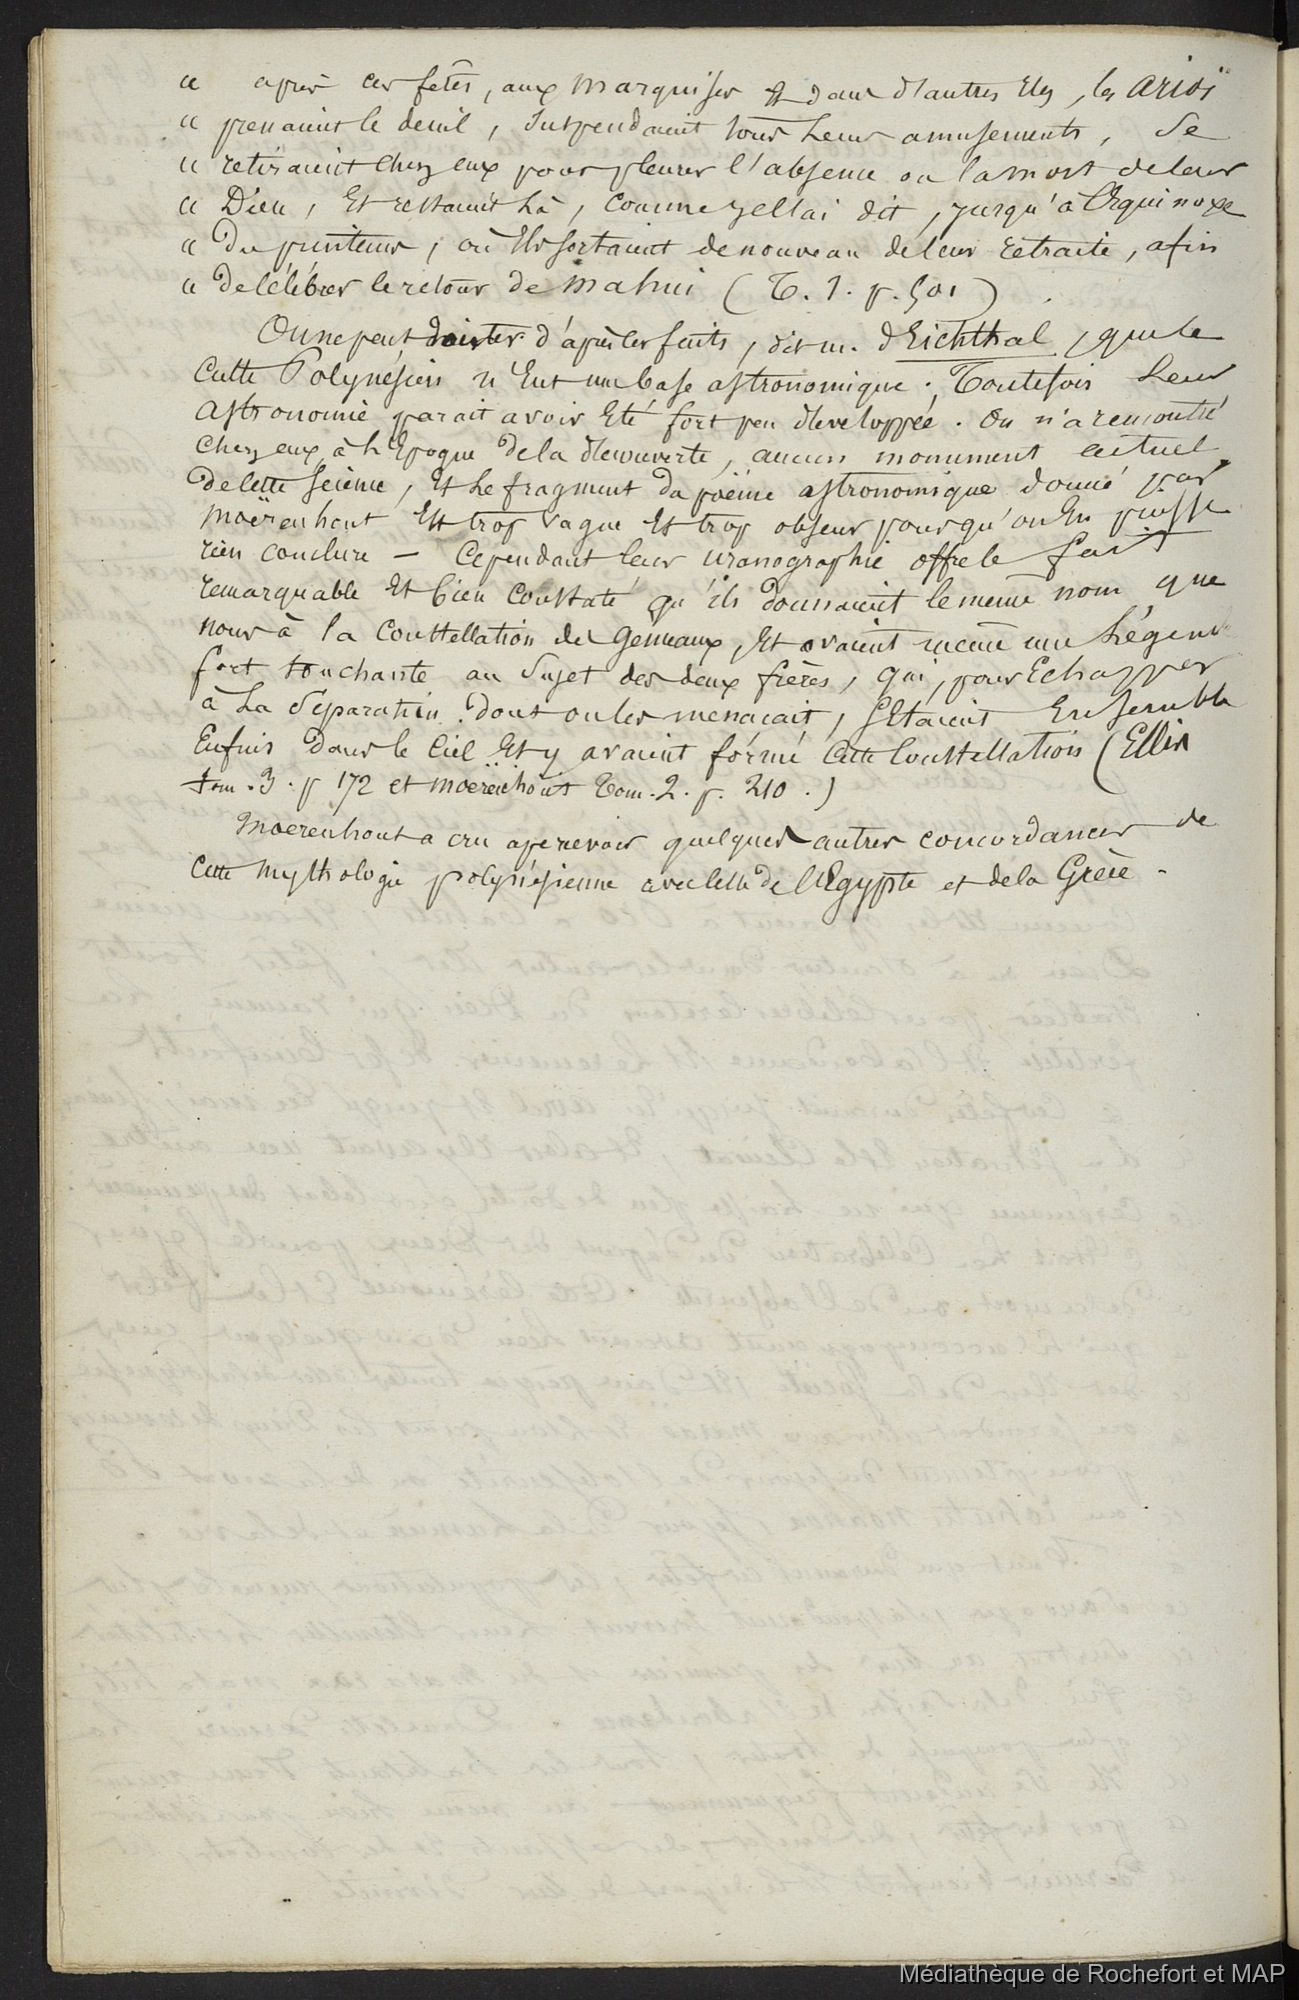 « après ces fêtes, aux Marquises et dans d'autres Iles, les Arioi
« prenaient le deuil, suspendaient tous leurs amusements, se
« retiraient chez eux pour pleurer l'absence ou la mort de leur
« Dieu, et restaient là, comme je l'ai dit, jusqu'à l'Equinoxe
« du printems, où ils sortaient de nouveau de leur retraite, afin
« de célébrer le retour de Mahui (T. 1. p. 501)
On ne peut douter d'après les faits, dit m. d'Eichthal, que le
Culte Polynésien n'eut une base astronomique. Toutefois leur
astronomie parait avoir été fort peu développée. On n'a rencontré
chez eux, à l'Epoque de la découverte, aucun monument actuel
de cette science, et le fragment du poëme astronomique donné par
Moërenhout est trop vague et trop obscur pour qu'on en puisse
rien conclure – Cependant leur uranographie offre le fait
remarquable et bien constaté qu'ils donnaient le même nom que
nous à la constellation des Gemeaux, et avaient même une légende
fort touchante au sujet des deux frères, qui, pour Echapper
à la séparation dont on les menaçait, s'étaient Ensemble
Enfuis dans le Ciel et y avaient formé Cette Constellation (Ellis
tom. 3. p 172 et Moerenhout Tom. 2. p. 210.)
Moerenhout a cru apercevoir quelques autres concordances de
cette mythologie polynésienne avec celle de l'Egypte et de la Grèce.
Médiathèque de Rochefort et MAP